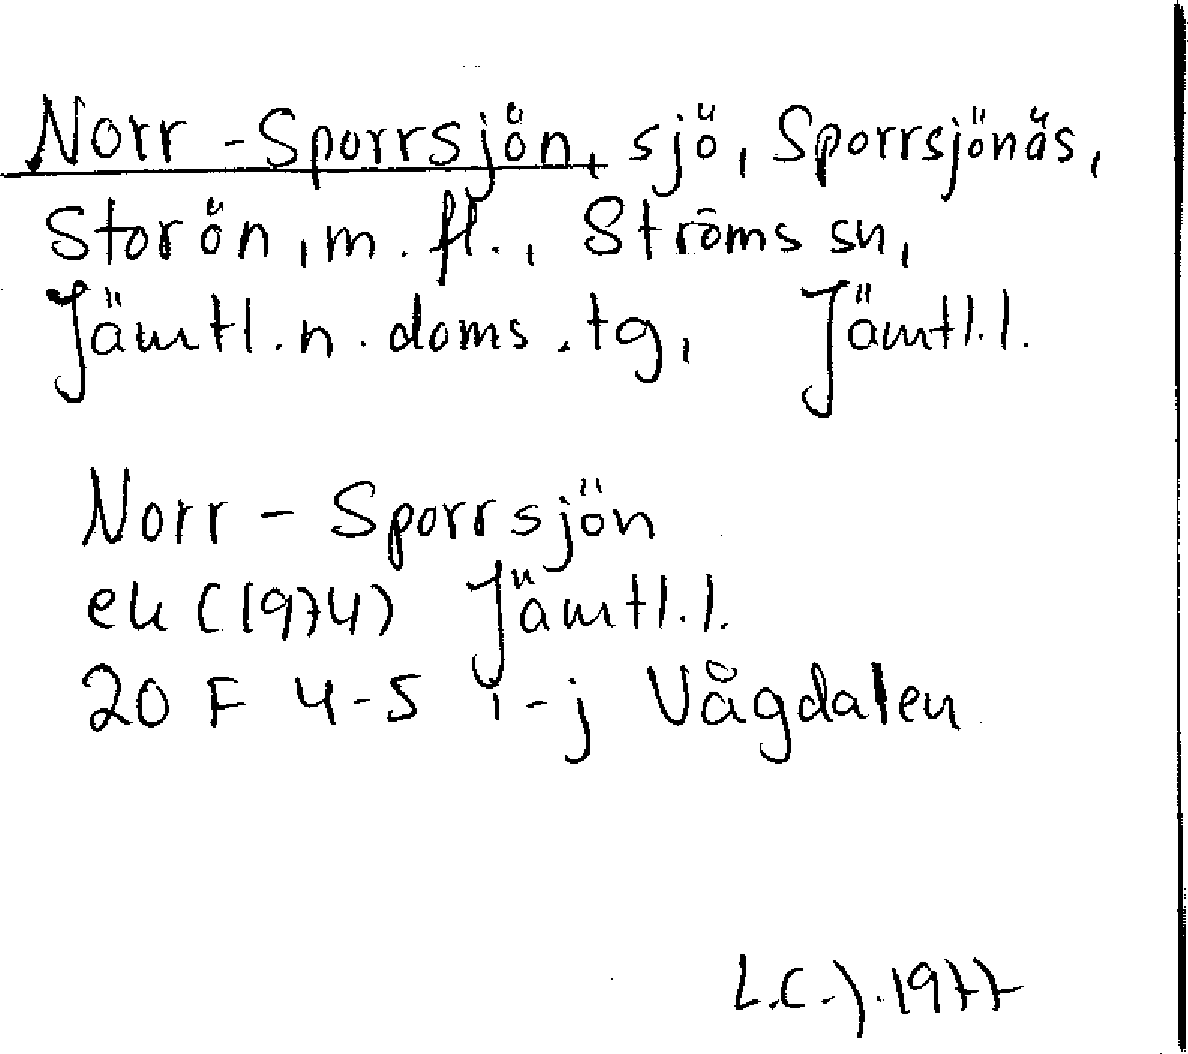 Norr-Sporrsjön, sjö, Sporrsjönäs,
Storön, m. fl., Ströms sn,
Jämtl. n. doms. tg, Jämtl. l.
Norr-Sporrsjön
ek (1974) Jämtl. l.
20 F 4-5 i-j Vågdalen
L.C.J. 1977